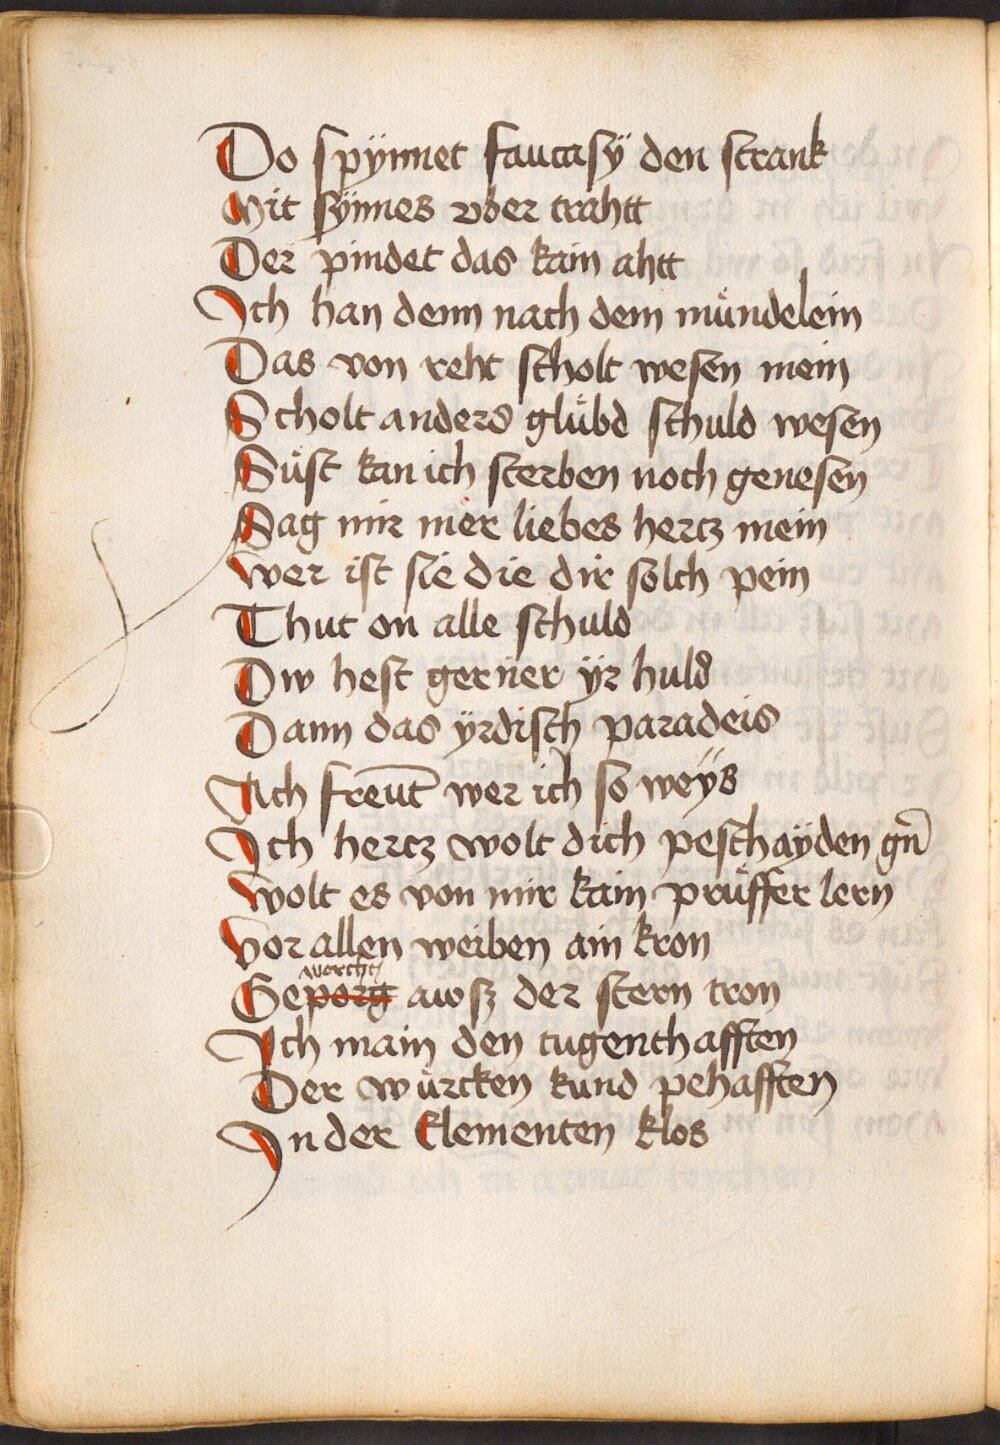 Do spÿnnet fantasÿ den strank
Mit sÿnnes vber trahtt
Der pindet das kain ahtt
Ich han denn nach dem mu̇ndelein
Das von reht scholt wesen mein
Scholt anders glu̇bd schuld wesen
Su̇st kan ich sterben noch genesen
Sag mir mer liebes hertz mein
Wer ist sie die dir solch pein
Thut on alle schuld
Dw hest gerner ÿr huld
Dann das ÿrdisch paradeis
Ach freu̅t wer ich so weÿs
Ich hertz wolt dich peschaÿden gn̅
Wolt es von mir kain pru̇ffer lern
Vor allen weiben ain kron
worcht
Geporg awsz der stern tron
Ich main den tugenthafften
Der wu̇rcken kund pehafften
In der Elementen klos